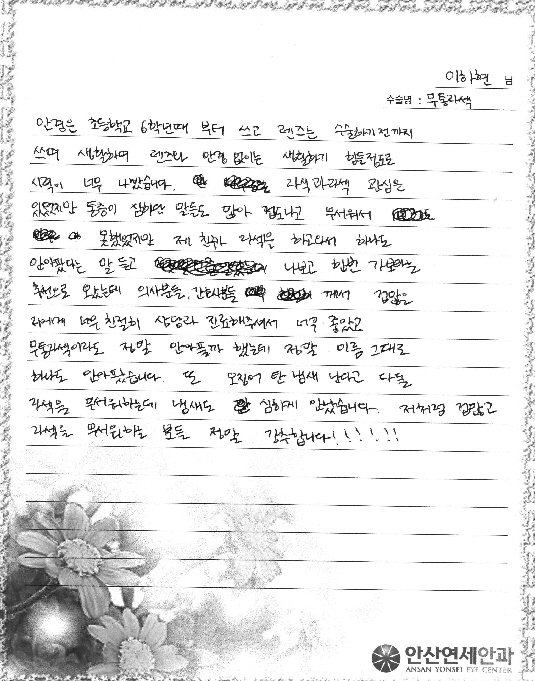 이하현 님
수술명 : 무통라섹
안경은 초등학교 6학년때 부터 쓰고 렌즈는 수술하기전까지
쓰며 생활하며 렌즈나 안경 없이는 생활하기 힘들정도로
시력이 너무 나빴습니다. 라식과라섹 관심은
있었지만 통증이 심하단 말들도 많아 겁도나고 무서워서
못했었지만 제 친구가 라섹을 하고와서 하나도
안아팠다는 말 듣고 나보고 한번 가보라는
추천으로 왔는데 의사분들, 간호사분들 께서 겁많은
저에게 너무 친절히 상담과 진료해주셔서 너무 좋았고
무통라섹이라도 정말 안아플까 했는데 정말 이름 그대로
하나도 안아팠습니다. 또 오징어 탄 냄새 난다고 다들
라섹을 무서워하는데 냄새도 심하게 안났습니다. 저처럼 겁많고
라섹을 무서워하는 분들 정말 강추합니다!!!!!!
안산연세안과
ANSAN YONSEI EYE CENTER